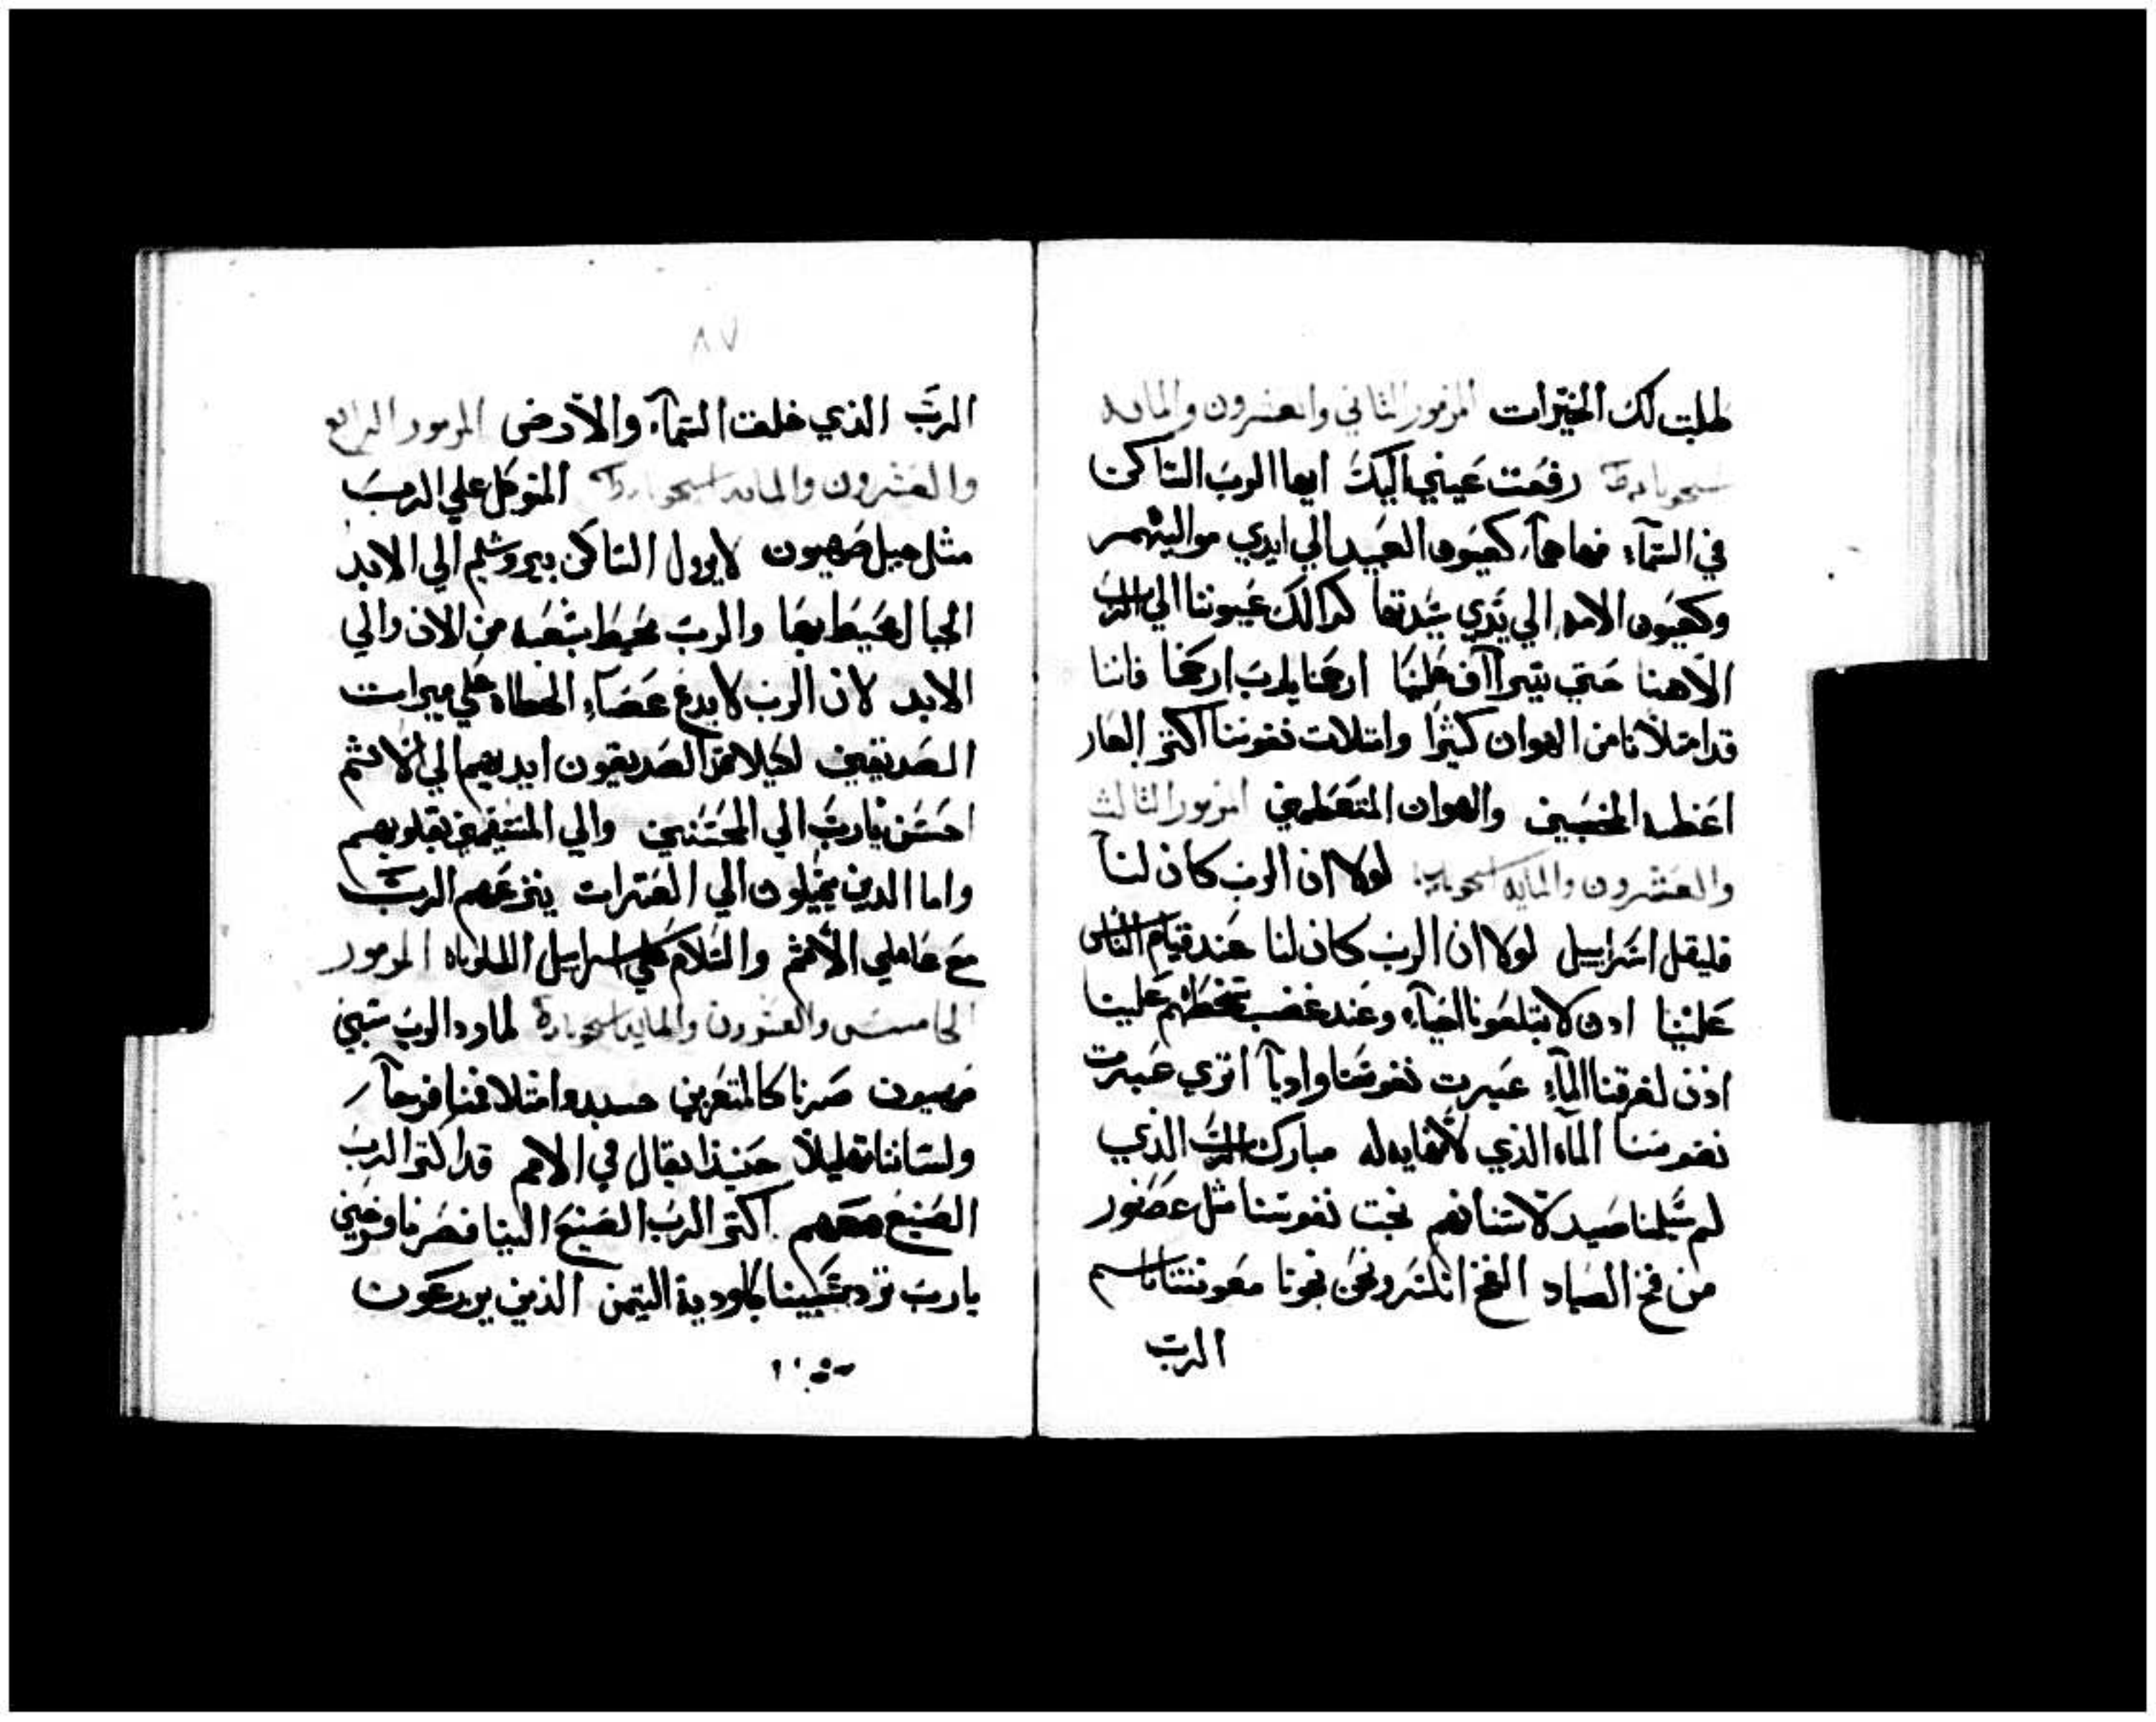 طلبت لك الخيرات المزمور الثاني والعشرون والمايه
رفعت عيني اليك ايها الرب الساكن
في السمآء فهاهمآ كعيون العبيد الي ايدي مواليهم
وكعيون الامه الي يدي سيدتها كدالك عيوننا الي الرب
الاهنا حتي يتيراآف علينا ارحمنا يارب ارحمنا فاننا
قد امتلانا من الهوان كثيرا وامتلات نفوسنا اكثر العار
اعطه المخصبين والهوان المتعطمين المزمور الثالث
والعشرون والمايه لولا ان الرب كان لنآ
فليقل اسراييل لولا ان الرب كان لنا عند قيام الناس
علينا ادن لابتلعونا احيآء وعند غضب سخطهم علينا
اذن لغرقنا المآء عبرت نفوسنا واديآ اتري عبرت
نفوسنا المآء الذي لانهايه له مبارك الرب الذي
لم يسلمنا صيد لاسنانهم نجت نفوسنا مثل عصفور
من فخ الصياد الفخ انكسر ونحن نجونا معونتنا باسم
الرب
٨٧
الرب الذي خلقت السمآء والارض المزمور الرابع
والعشرون والمايه المتوكل علي الرب
مثل جبل صهيون لايزول الساكن بيروشليم الي الابد
الجبال محيط بها والرب محيط بشعبه من الان والي
الابد لان الرب لايدع عصاء الخطاه علي ميرات
الصديقين لكيلا تمد الصديقون ايديهم الي الاثم
احسن يارب الي المحسنين والي المستقيمين بقلوبهم
واما الدين يميلون الي العترات ينزعهم الرب
مع عاملي الاثم والسلام علي اسراييل المزمور
الخامس والعشرون والمايه لما رد الرب سبي
صهيون صرنا كالمتعزين حينيد امتلا فمنا فرحآ
ولساننا تهليلا حينيذ يقال في الامم قد اكثر الرب
الصنيع معهم اكثر الرب الصنيع الينا فصرنا فرحين
يارب ترد سبينا كاودية التيمن الذين يزرعون